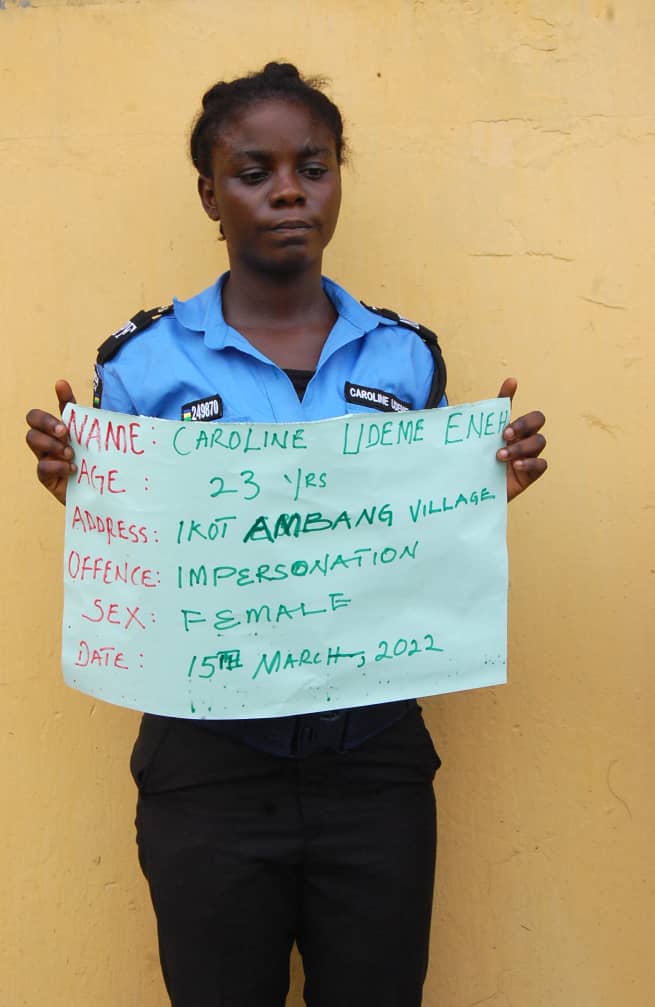 249870
CAROLINE UDEME
NAME: CAROLINE UDEME ENEH
AGE: 23 YRS
ADDRESS: IKOT AMBANG VILLAGE
OFFENCE: IMPERSONATION
SEX: FEMALE
DATE: 15TH MARCH, 2022